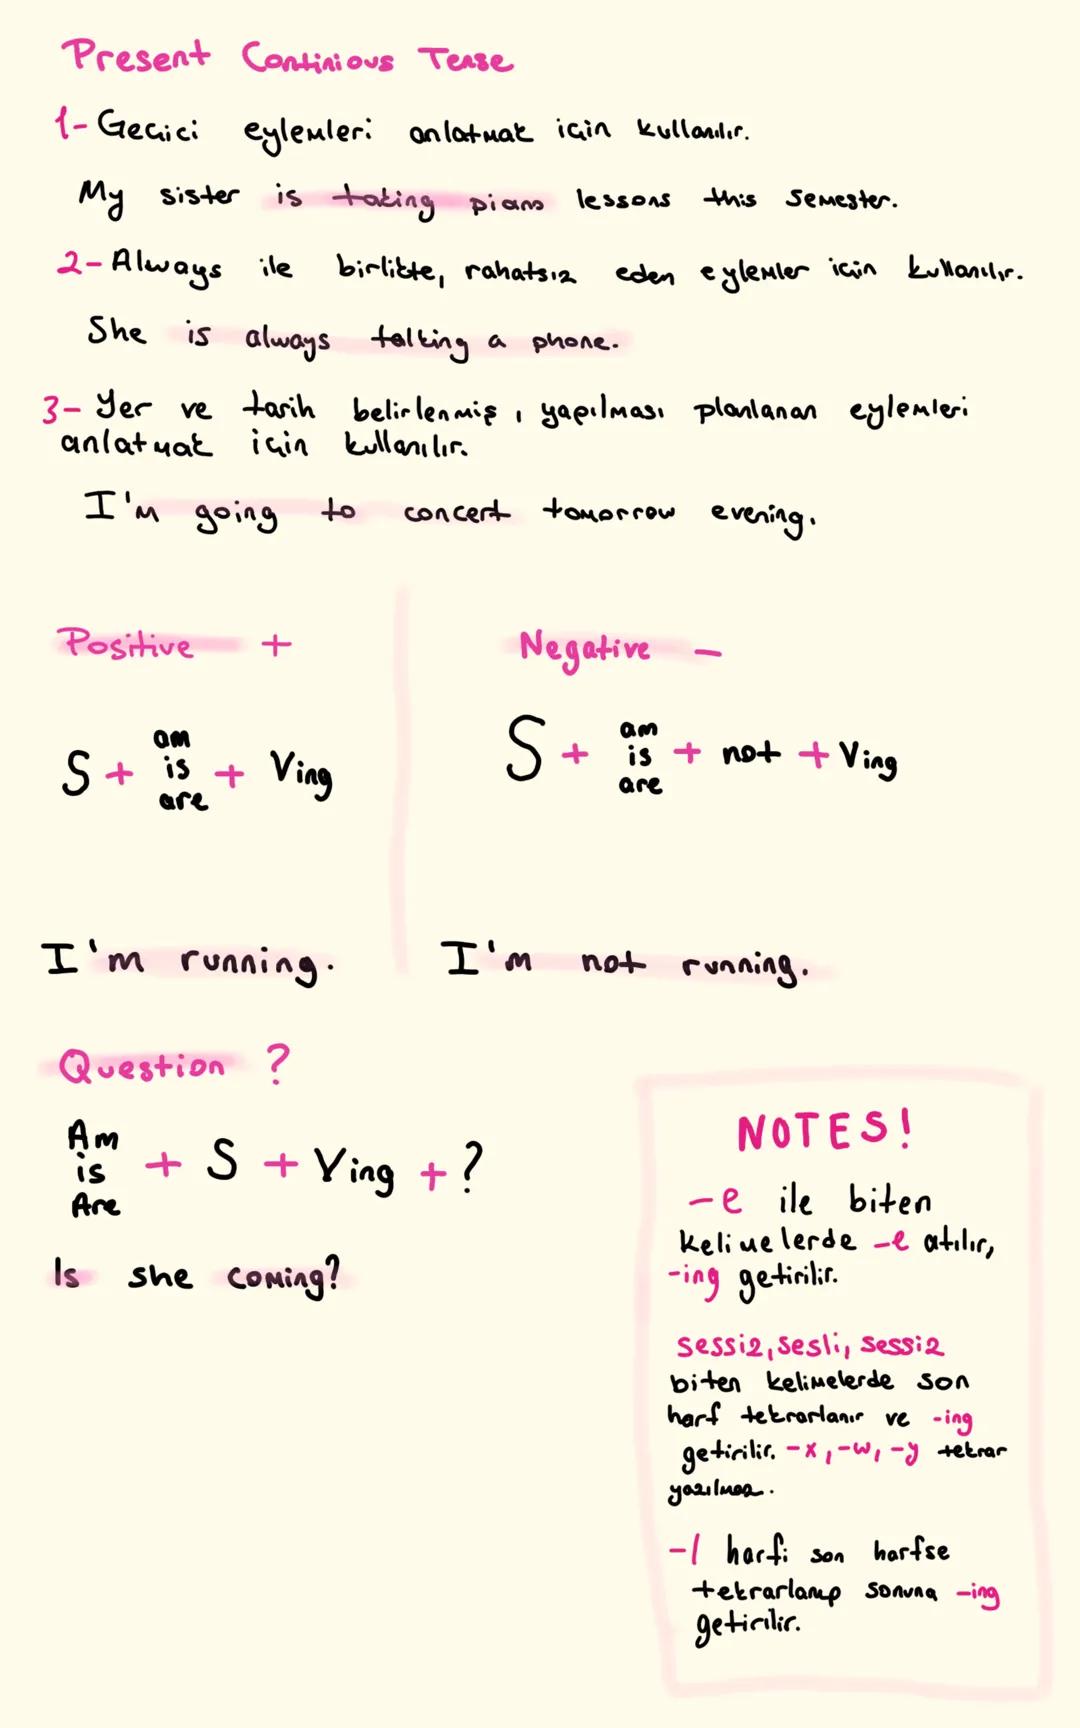 Present Continious Tense
1- Geçici eylemleri anlatmak için kullanılır.
My sister is taking piano lessons this semester.
2- Always ile birlikte, rahatsız eden eylemler için kullanılır.
She is always talking a phone.
3- Yer ve tarih belirlenmiş, yapılması planlanan eylemleri
anlatmak için kullanılır.
I'm going to concert tomorrow evening.
Positive +
S + am is are + Ving
I'm running.
Negative -
S + am is are + not + Ving
I'm not running.
Question ?
Am is Are + S + Ving + ?
Is she coming?
NOTES!
-e ile biten
kelimelerde -e atılır,
-ing getirilir.
sessiz, sesli, sessiz
biten kelimelerde son
harf tekrarlanır ve -ing
getirilir. -x, -w, -y tekrar
yazılmaz.
-l harfi son harfse
tekrarlanıp sonuna -ing
getirilir.